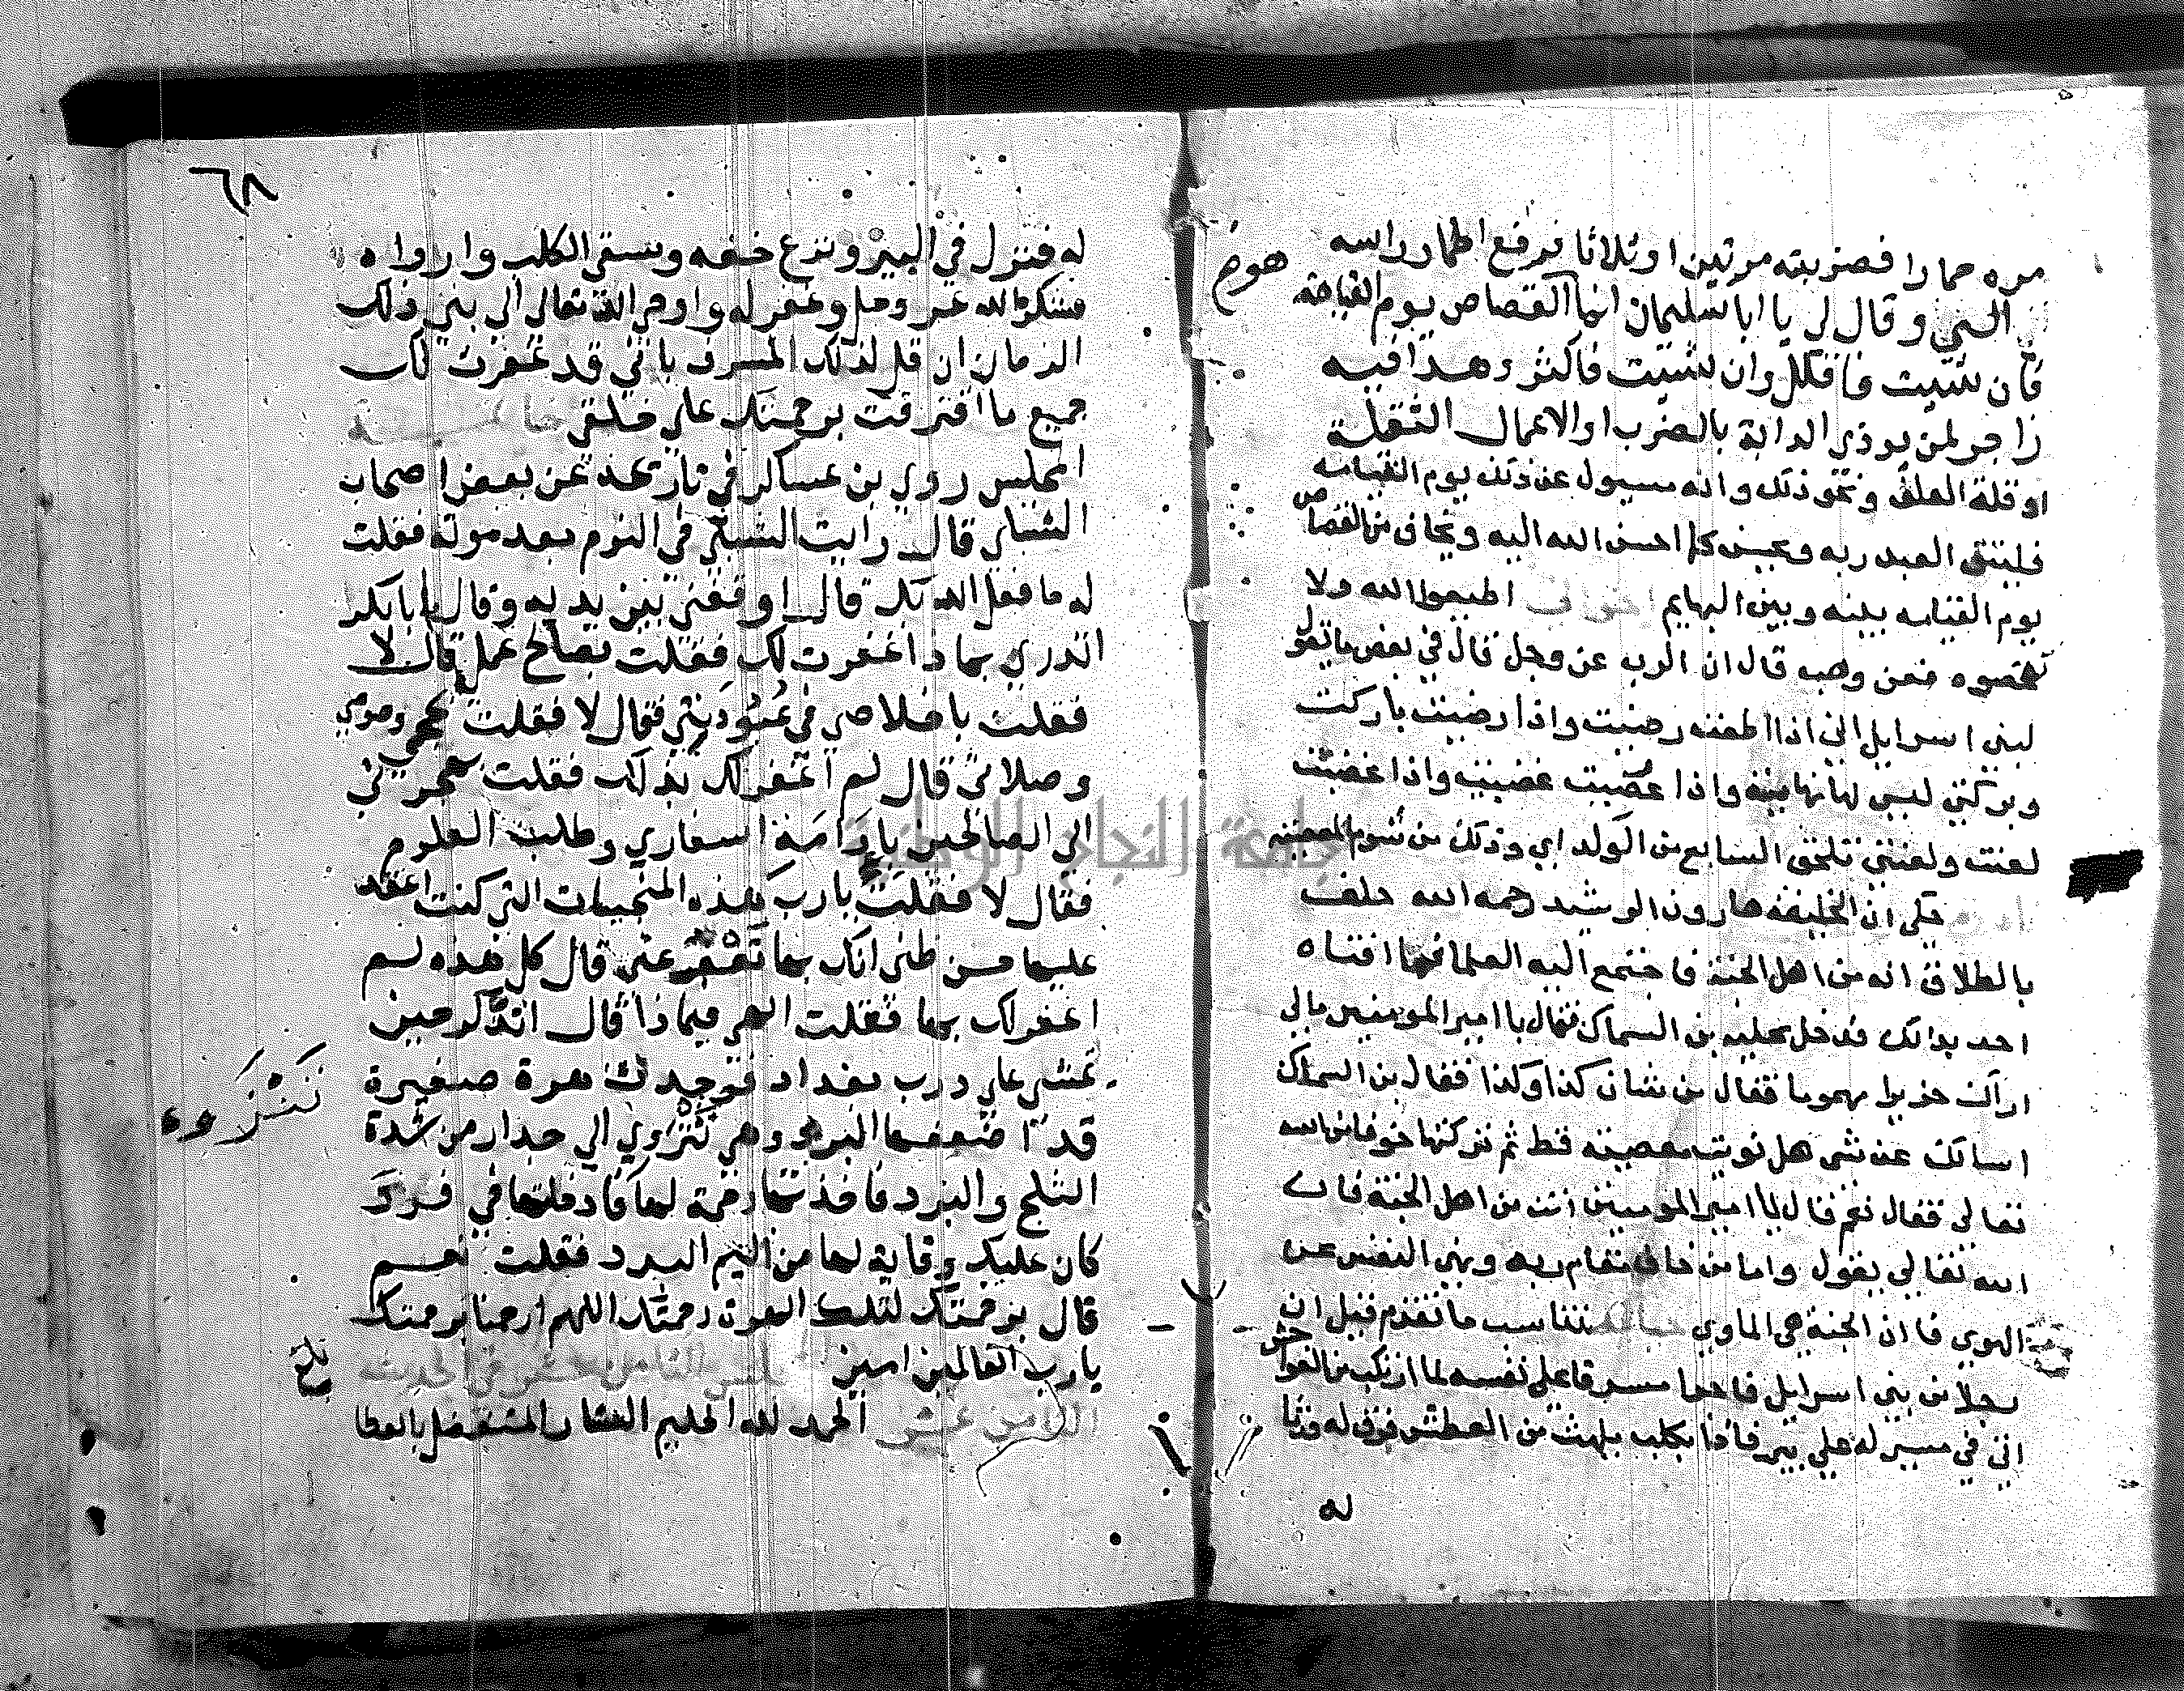 مره حمارا فضربته مرتين اوثلاثا فرفع الحمار راسه
الي وقال لي يا ابا سليمان انما القصاص يوم القيامة
فان شيت فاقلل وان شيت فاكثر وهذا فيه
زاجر لمن يوذي الدابة بالضرب او الاعمال الثقلة
او قلة العلف ونحو ذلك وانه مسيول عن ذلك يوم القيامه
فليتق العبد ربه ويحسن كما احسن الله اليه ويخاف من القصاص
يوم القيامه بينه وبين البهايم اخواني اطيعوا الله ولا
تعصوه فعن وهب قال ان الرب عز وجل قال في بعض ما يقول
لبني اسرايل اني اذا اطعت رضيت واذا رضيت باركت
وبركتي ليس لها نهاية واذا عصيت غضبت واذا غضبت
لعنت ولعنتي تلحق السابع من الولد اي وذلك من شوم المعصيه
حكي ان الخليفه هارون الرشيد رحمه الله حلف
بالطلاق انه من اهل الجنة فاجتمع اليه العلما فما افتاه
احد بذالك فدخل عليه بن السماك فقال يا امير المومنين مالي
اراك حزينا مهموما فقال من شان كذا وكذا فقال بن السماك
اسالك عن شي هل نويت معصيته قط ثم تركتها خوفا من الله
تعالى فقال نعم قال يا امير المومنين انت من اهل الجنة فان
الله تعالي يقول واما من خاف مقام ربه ونهي النفس عن
الهوي فان الجنة هي الماوي تناسب ما تقدم قيل ان
رجلا من بني اسرايل فاحما مسرفا علي نفسه لما ارتكب من الفواحش
اتي في مسير له علي بير فاذا بكلب يلهث من العطش فرق له ورثا
له
٦٨
له فنزل في البير ونزع خفه وسقى الكلب وارواه
فشكر الله عز وجل وغفر له واوحى الله تعالى الي بني ذلك
الزمان ان قل لذلك المسرف باني قد غفرت لك
جميع ما اقترفت برحمتك علي خلقي
المجلس روي بن عساكر في تاريخه عن بعض اصحاب
الشبلي قال رايت الشبلي في النوم بعد موته فقلت
له ما فعل الله بك قال اوقفني بين يديه وقال يا بابكر
اتدري بماذا غفرت لك فقلت بصالح عمل قال لا
فقلت باخلاصي في عبوديتي فقال لا فقلت بحجي وصومي
وصلاتي قال لم اغفر لك بذلك فقلت بهجرتي
الي الصالحين بادامة اسفاري وطلب العلوم
فقال لا فقلت يارب هذه المنجيات التي كنت اعقد
عليها حسن ظني انك بها تعفو عني قال كل هذه لم
اغفر لك بها فقلت الهي فيماذا قال اتذكر حين
تمشي علي درب بغداد فوجدت هرة صغيرة
قد اضعفها البرد وهي تنزوي الي جدار من شدة
الثلج والبرد فاخذتها رحمة لها فادخلتها في فرو
كان عليك وقاية لها من اليم البرد فقلت نعم
قال برحمتك لتلك الهرة رحمتك اللهم ارحمنا برحمتك
يارب العالمين امين
الحمد لله الحليم الستار المتفضل بالعطا
بلغ